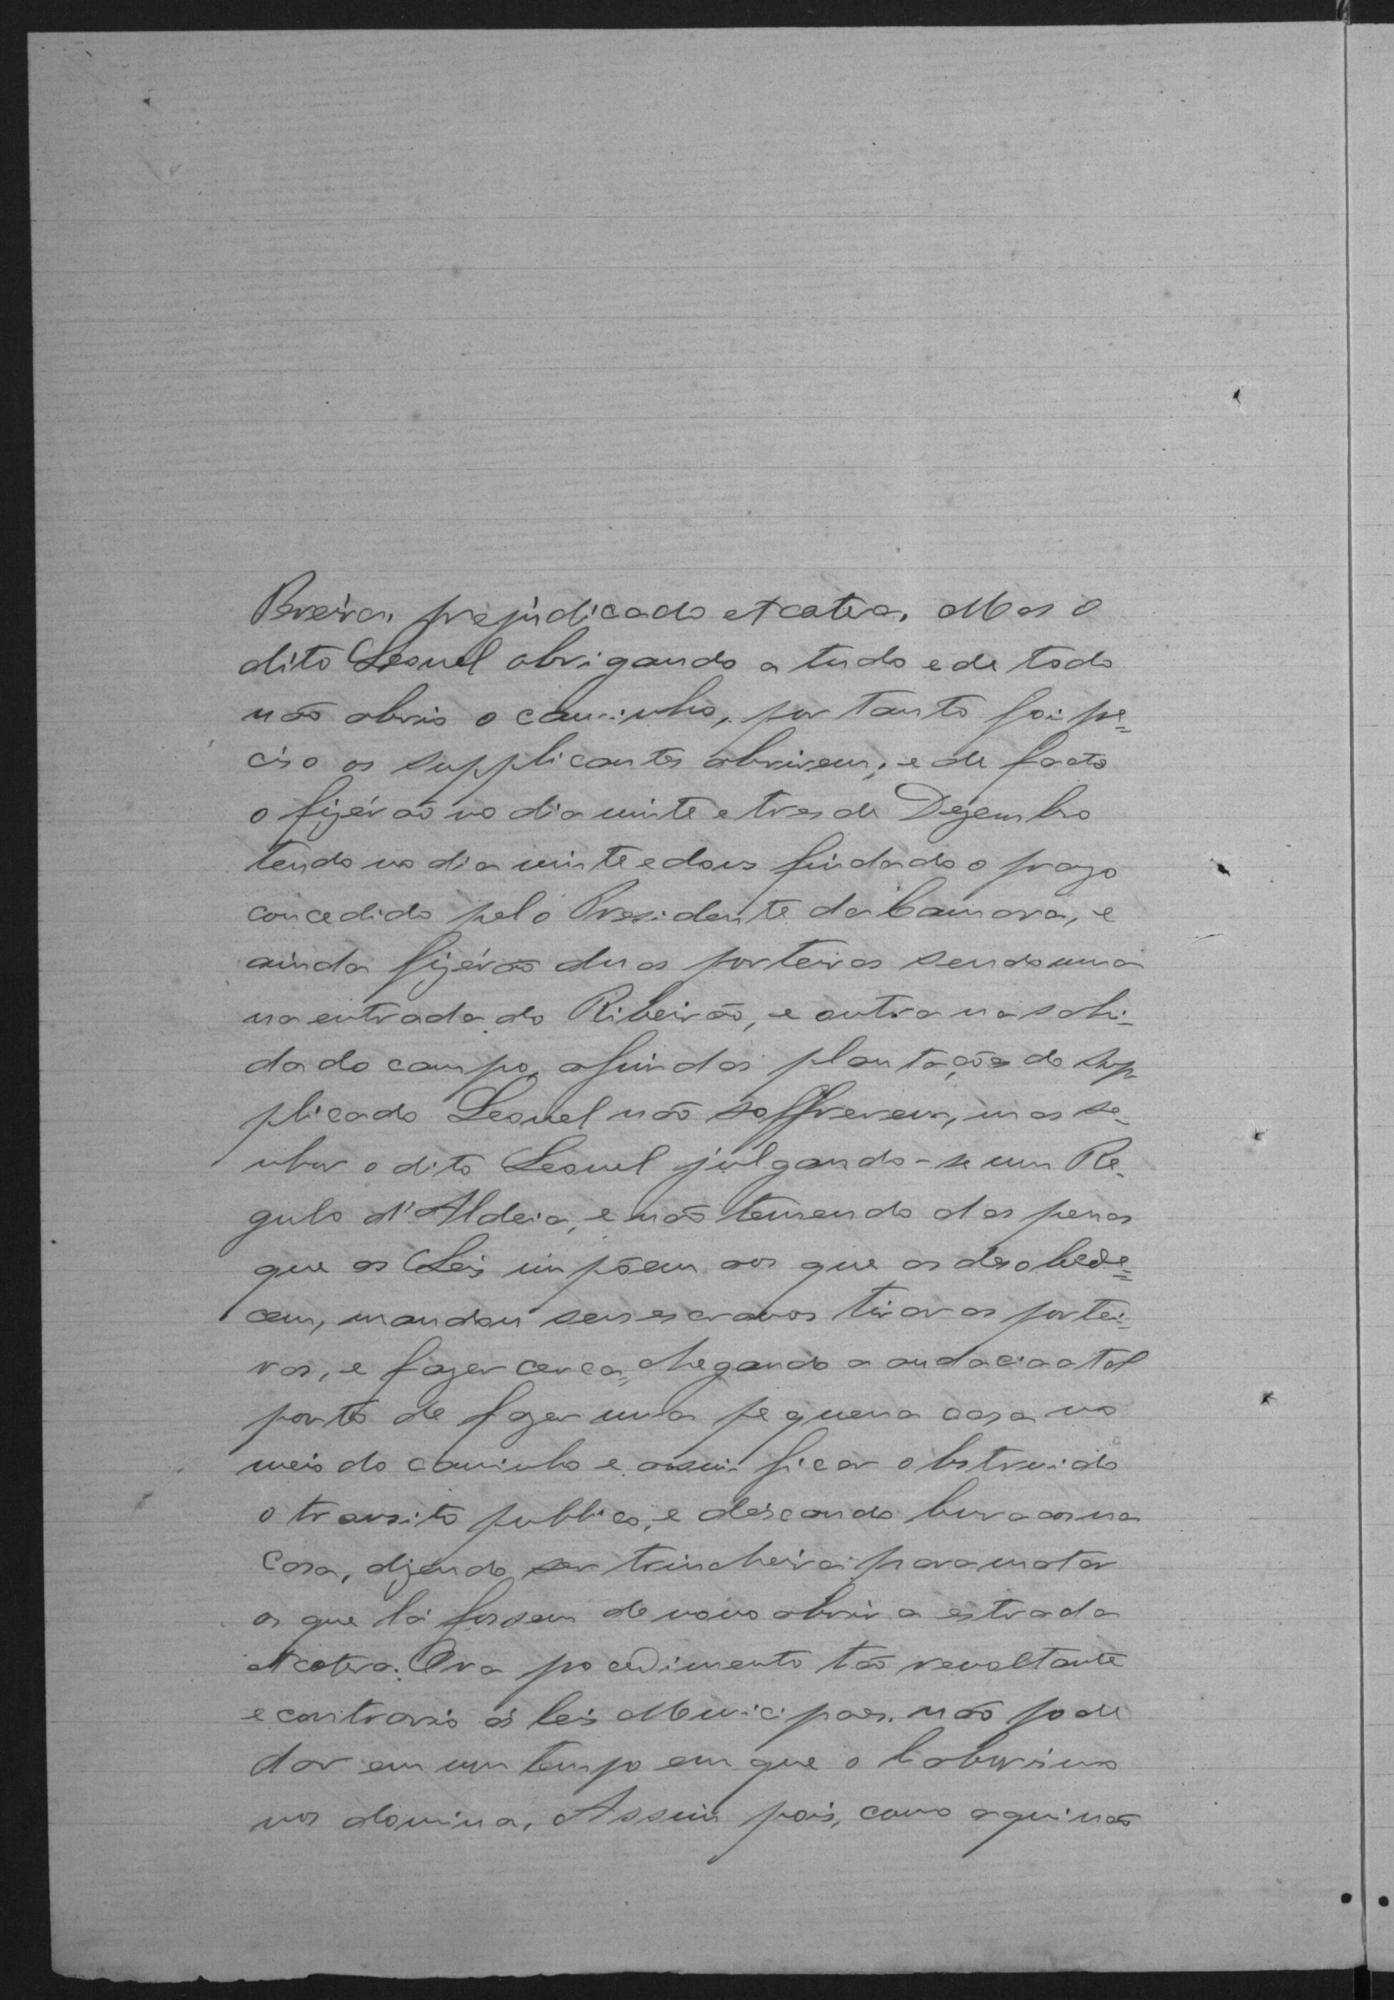 Pereira, prejudicado etcatera. Mas o
dito Leonel obrigando a tudo e de todo
não abrio o caminho, por tanto foi pe=
ciso os supplicantes abrirem, e de facto
o fizérão no dia vinte e tres de Dezembro
tendo no dia vinte e dous findado o prazo
concedido pelo Presidente da Camara, e
ainda fizérão duas porteiras sendo uma
na entrada do Ribeirão, e outra na sahi=
da do campo, afim das plantações do sup
plicado Leonel não soffrerem, mas se=
nhor o dito Leonel julgando-se um Re=
gulo d'Aldeia, e não temendo das penas
que as Leis impõem aos que as desobede=
cem, mandou seus escravos tirar as portei=
ras, e fazer cerca, chegando a audacia a tal
ponto de fazer uma pequena casa no
meio do caminho e assim ficar obstruido
o transito publico, e deixando buracos na
Casa, dizendo ser trincheira para matar
os que lá fossem de novo abrir a estrada
etcatera. Ora pocedimento tão revoltante
e contrario ás leis Municipaes, não pode
dar em um tempo em que o
nos domina. Assim pois, como aqui não